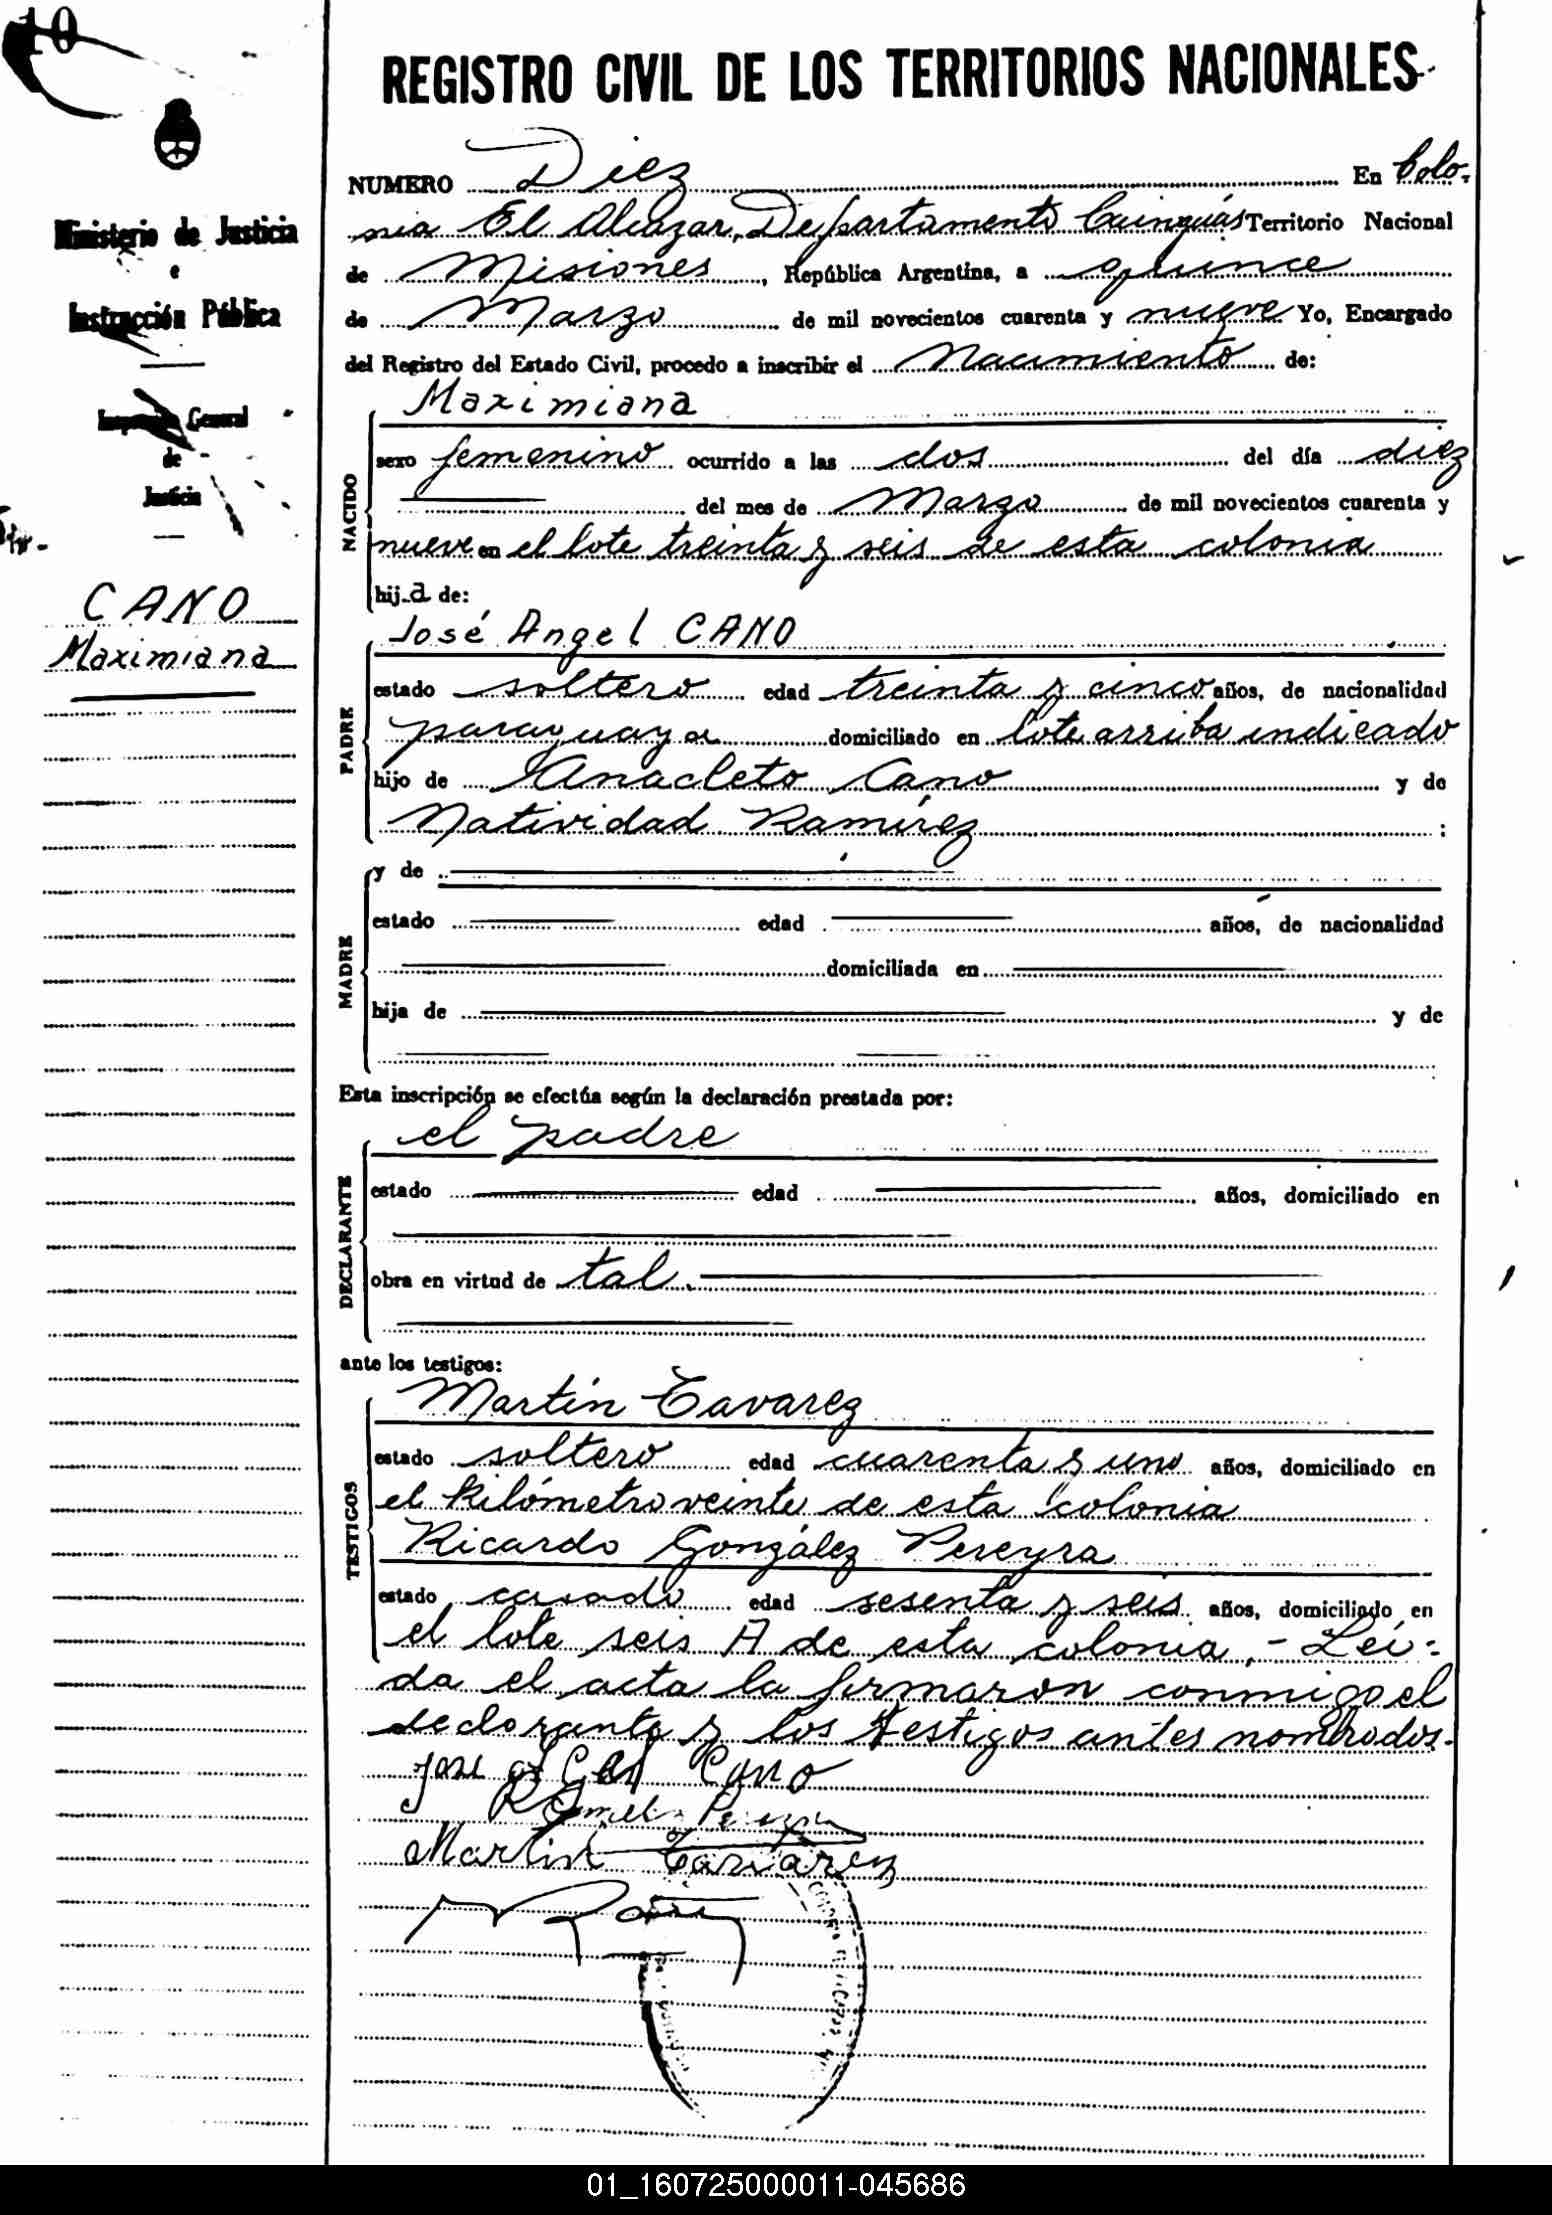 10
REGISTRO CIVIL DE LOS TERRITORIOS NACIONALES
Ministerio de Justicia
e
Instrucción Pública
Inspección General
de
Justicia
CANO
Maximiana
NUMERO Diez En Colo-
nia El Alcázar, Departamento Cainguás Territorio Nacional
de Misiones, República Argentina, a quince
de Marzo de mil novecientos cuarenta y nueve Yo, Encargado
del Registro del Estado Civil, procedo a inscribir el Nacimiento de:
NACIDO
Maximiana
sexo femenino ocurrido a las dos del día diez
del mes de Marzo de mil novecientos cuarenta y
nueve en el lote treinta y seis de esta colonia
hij.a de:
PADRE
José Angel CANO
estado soltero edad treinta y cinco años, de nacionalidad
paraguaya domiciliado en lote arriba indicado
hijo de Anacleto Cano y de
Natividad Ramírez :
MADRE
y de
estado edad años, de nacionalidad
domiciliada en
hija de y de
Esta inscripción se efectúa según la declaración prestada por:
DECLARANTE
el padre
estado edad años, domiciliado en
obra en virtud de tal.
ante los testigos:
TESTIGOS
Martín Tavarez
estado soltero edad cuarenta y uno años, domiciliado en
el kilómetro veinte de esta colonia
Ricardo González Pereyra
estado casado edad sesenta y seis años, domiciliado en
el lote seis A de esta colonia, - Leí-
da el acta la firmaron conmigo el
declarante y los testigos antes nombrados.
Jose Cano
Martin Tavarez
01_160725000011-045686